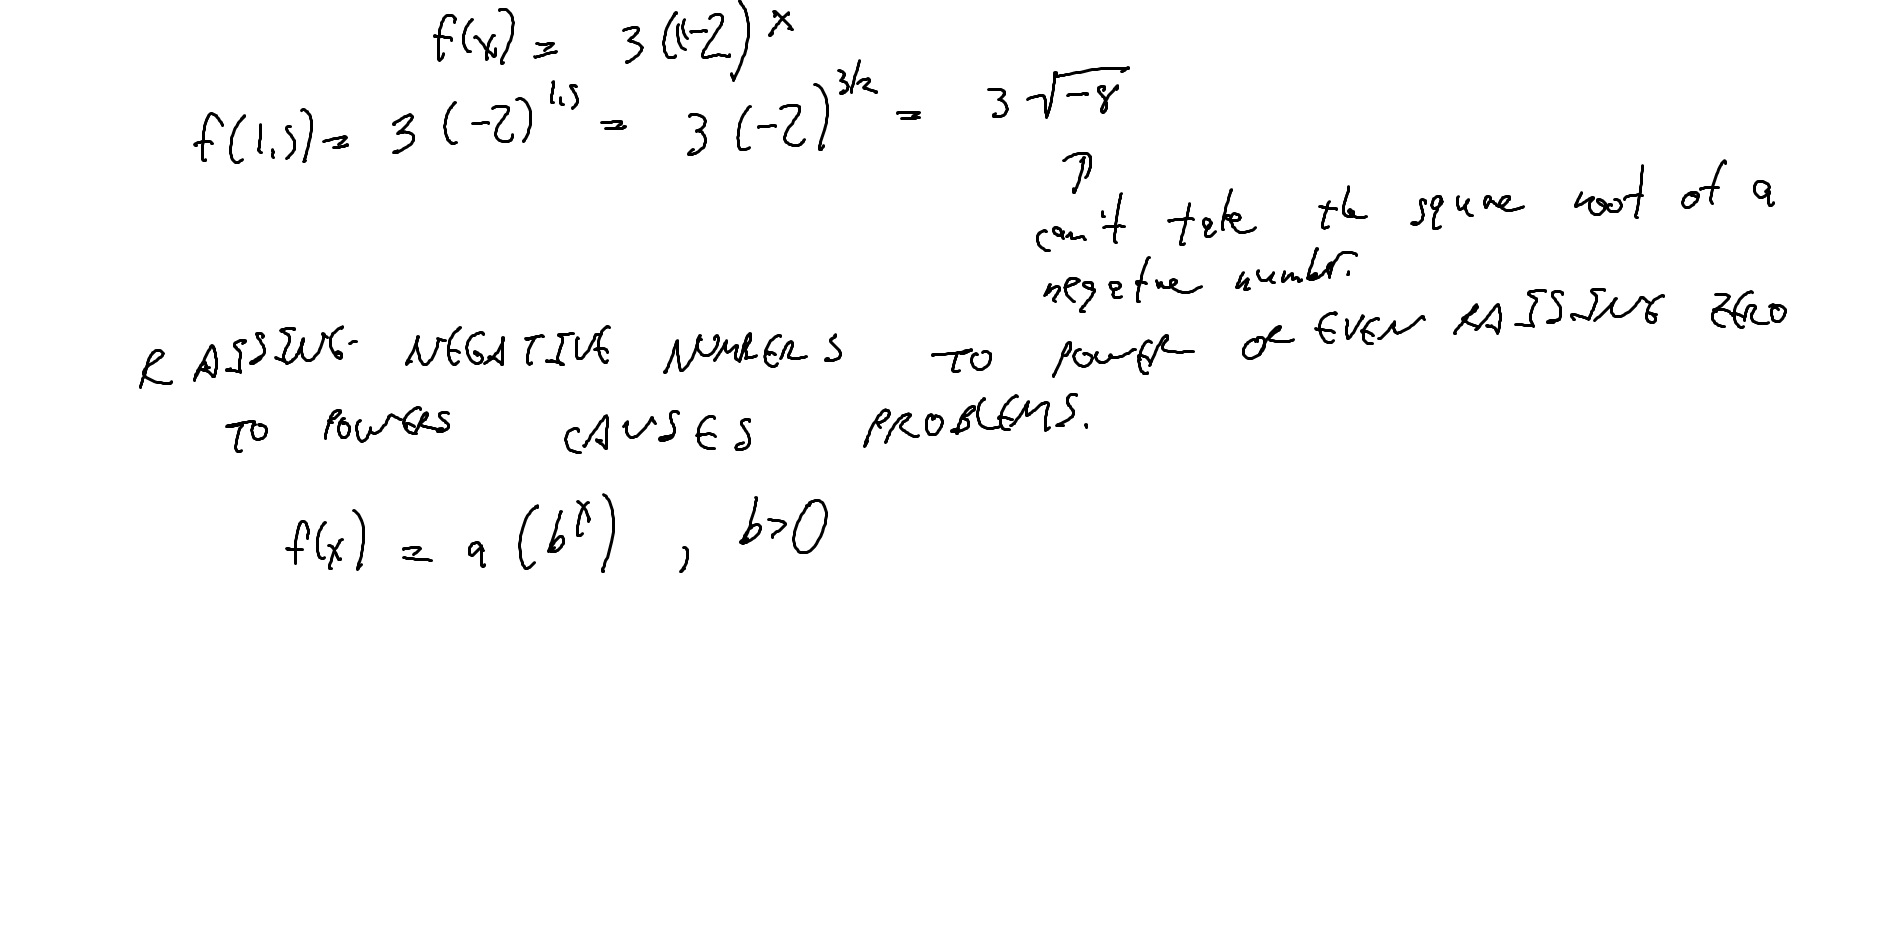 f(x) = 3(-2)^x
f(1.5) = 3(-2)^1.5 = 3(-2)^3/2 = 3√-8
↑
can't take the square root of a
negative number.
RAISING NEGATIVE NUMBERS TO POWER OR EVEN RAISING ZERO
TO POWERS CAUSES PROBLEMS.
f(x) = a(b^x), b>0